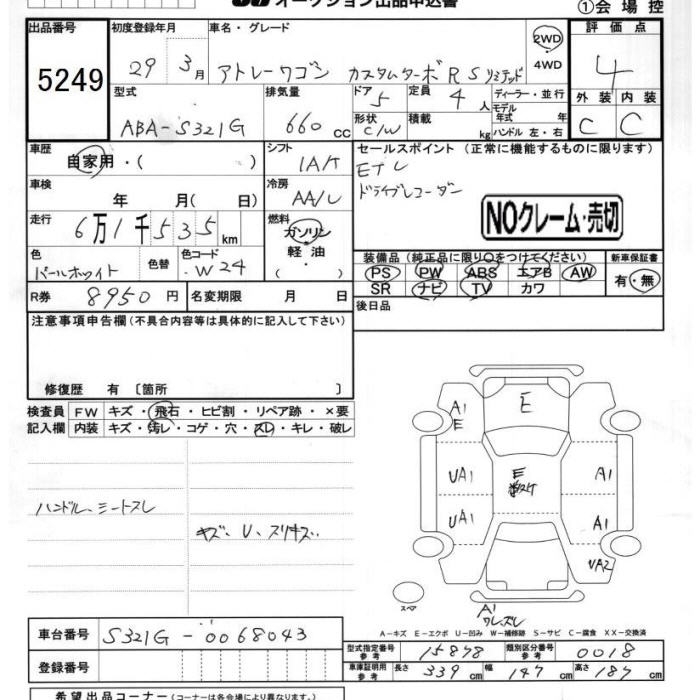 オークション出品申込書
①会場控
出品番号
5249
初度登録年月
29年3月
車名・グレード
アトレーワゴン カスタムターボRSリミテッド
2WD
4WD
評価点
4
外装 内装
C C
型式
ABA-S321G
排気量
660cc
ドア
5
形状
C/W
定員
4人
積載
kg
ディーラー・並行
モデル年式 年
ハンドル 左・右
車歴
自家用・( )
シフト
IA/T
セールスポイント (正常に機能するものに限ります)
ETC
ドライブレコーダー
NOクレーム・売切
車検
年 月( 日)
冷房
AA/C
走行
6万1千535km
燃料
ガソリン
軽油
( ・ )
色
パールホワイト
色替
色コード
W24
装備品(純正品に限り○をつけてください)
PS PW ABS エアB AW
SR ナビ TV カワ
新車保証書
有・無
R券
8950円
名変期限 月 日
後日品
注意事項申告欄(不具合内容等は具体的に記入して下さい)
修復歴 有 〔箇所 〕
検査員記入欄
FW キズ・飛石・ヒビ割・リペア跡・×要
内装 キズ・汚レ・コゲ・穴・スレ・キレ・破レ
ハンドル、シートスレ
キズ、U、スリキズ
A1
E
E
UA1
E
A1
UA1
A1
UA2
スペア
A1
ワレ、スレ
A-キズ E-エクボ U-凹み W-補修跡 S-サビ C-腐食 XX-交換済
車台番号
S321G-0068043
登録番号
型式指定番号参考
15878
類別区分番号参考
0018
車庫証明用参考
長さ 339cm 幅 147cm 高さ 187cm
希望出品コーナー(出品コーナーは各会場により異なります)